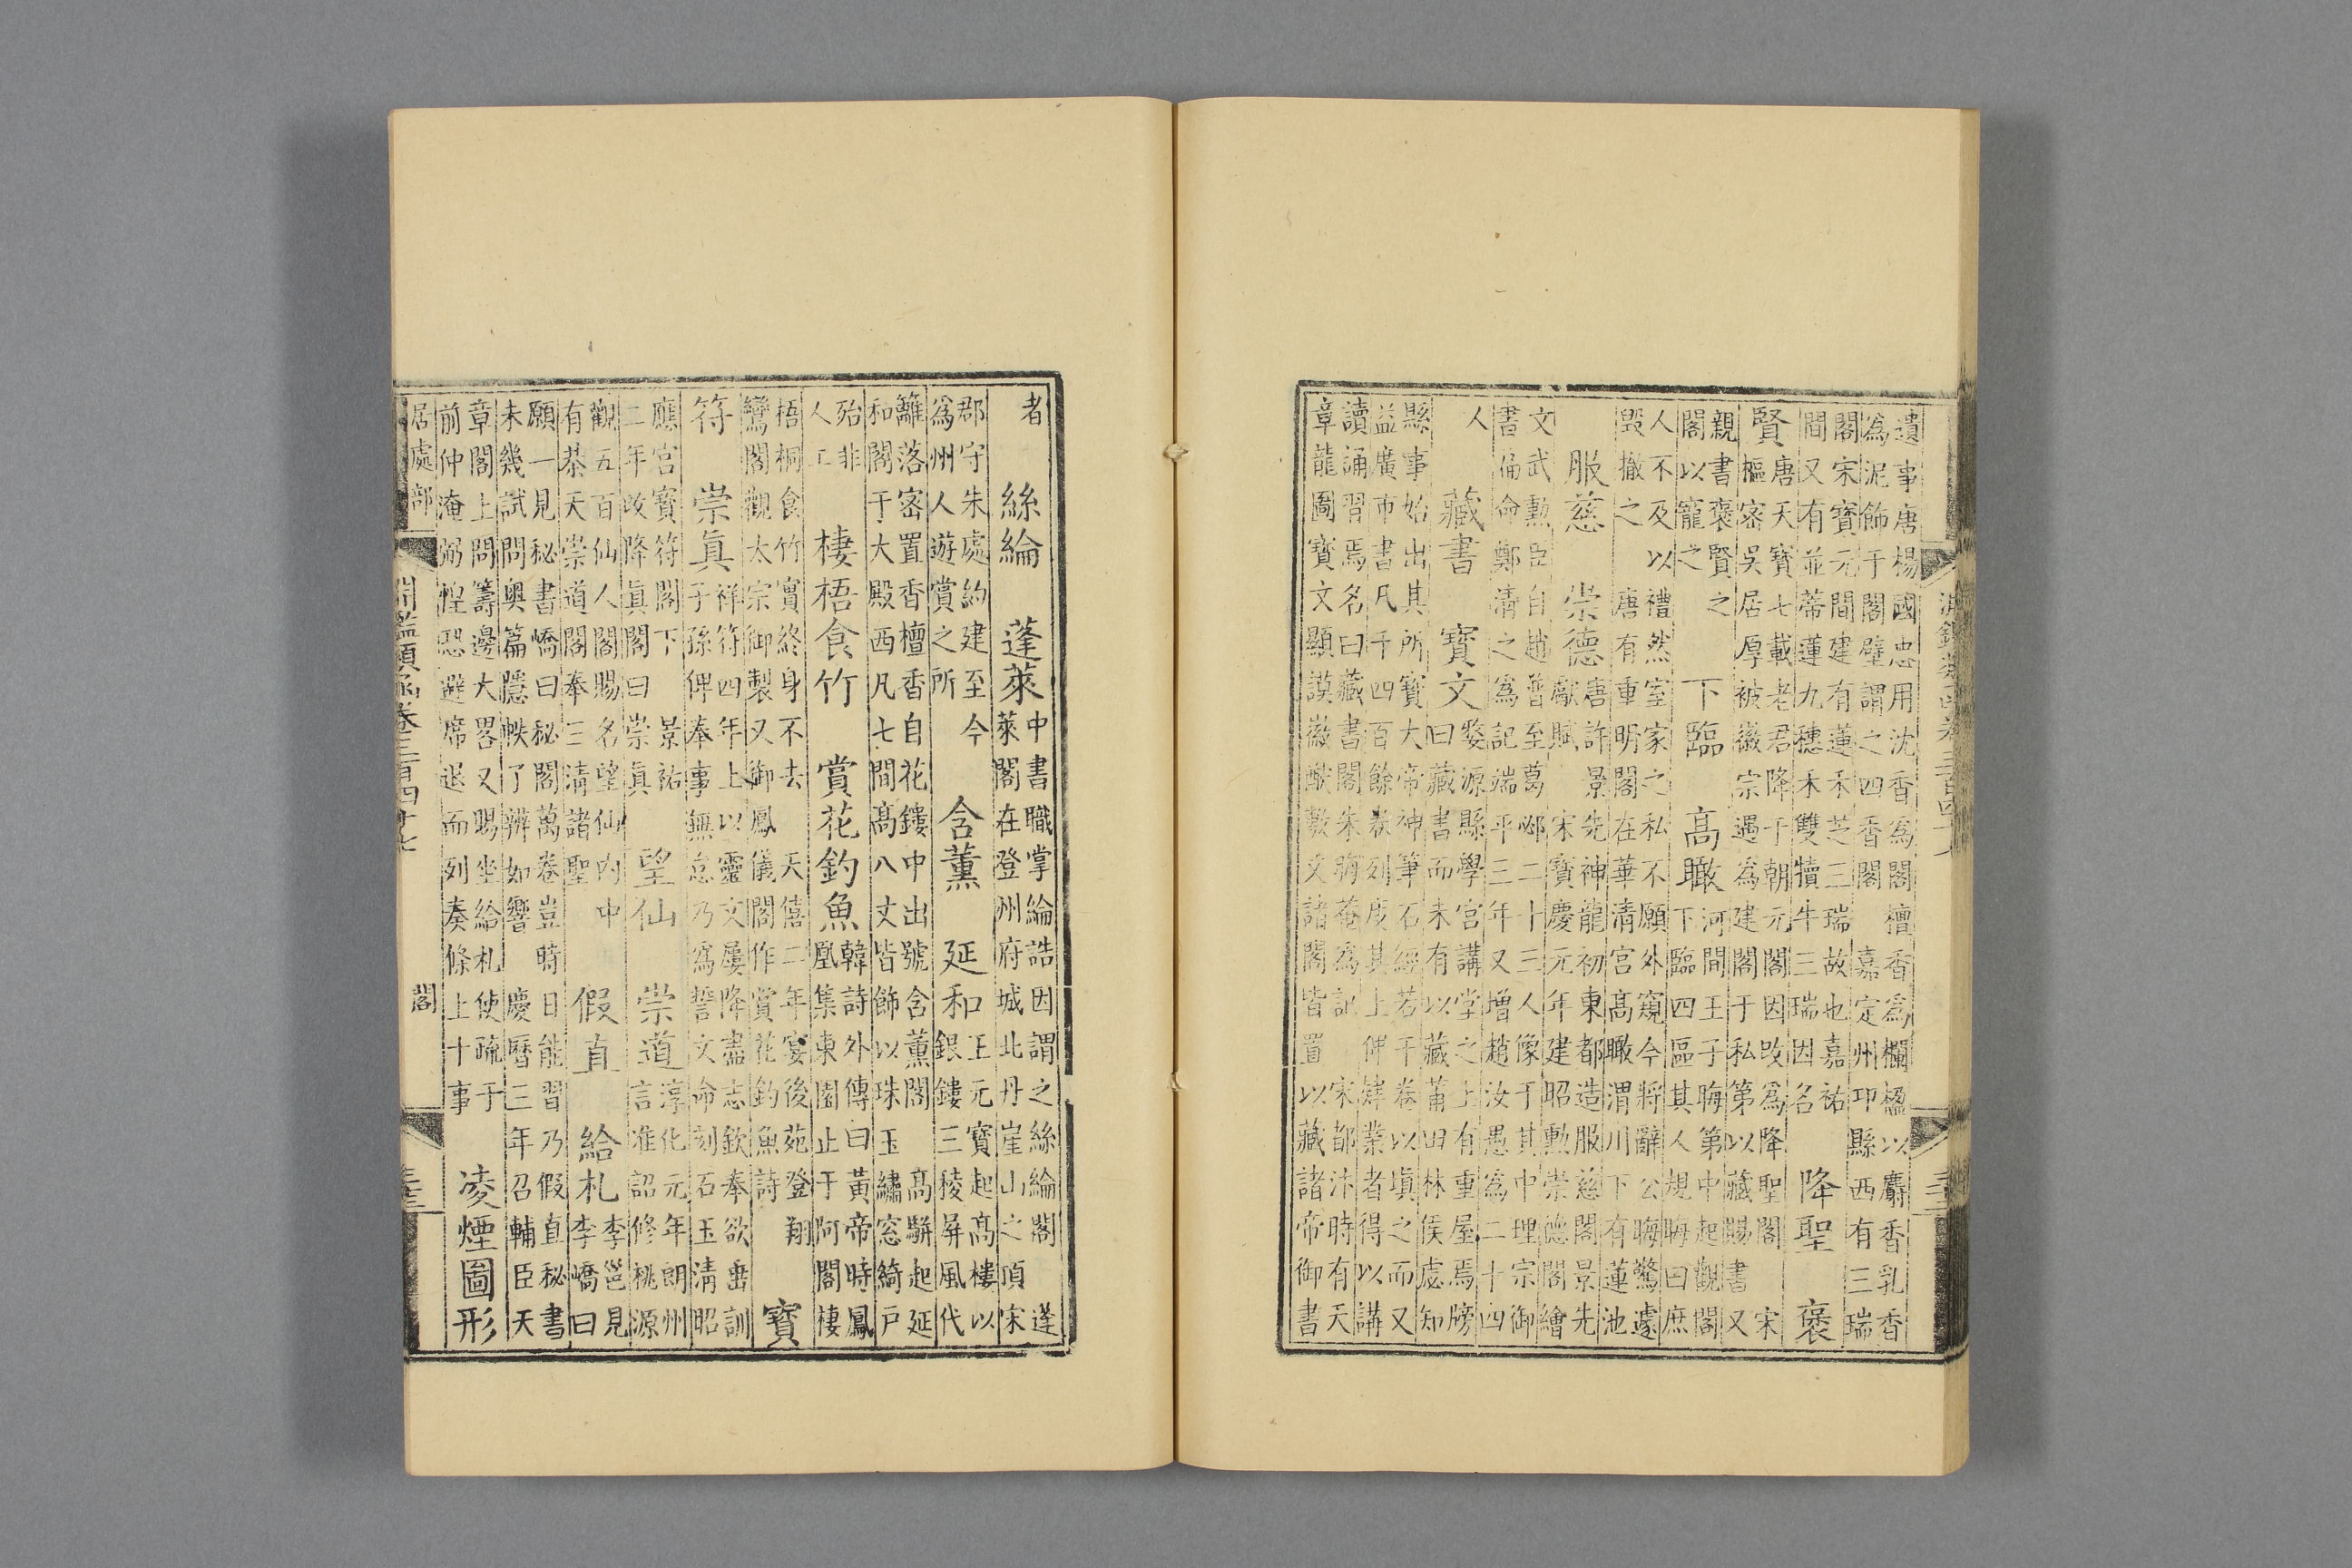 遺事唐楊國忠用沈香為閣檀香為欄楹以麝香乳香
為泥飾于閣壁謂之四香閣　嘉定州邛縣西有三瑞
閣宋寶元間建有蓮禾芝三瑞故也嘉祐
間又有並蒂蓮九穗禾雙犢牛三瑞因名
降聖　褒
賢
唐天寶七載老君降于朝元閣因改為降聖閣　宋
樞密吳居厚被徽宗遇為建閣于私第以藏賜書又
親書褒賢之
閣以寵之
下臨　高瞰
河間王子晦第中起觀閣
下臨四區其人規晦曰庶
人不及以禮然室家之私不願外窺今將辭公晦驚遽
毀撤之　唐有重明閣在華清宮高瞰渭川下有蓮池
服慈　崇德
唐許景先神龍初東都造服慈閣景先
獻賦　宋寶慶元年建昭勳崇德閣繪
文武勳臣自趙普至葛邲二十三人像于其中理宗御
書俻命鄭清之為記端平三年又增趙汝愚為二十四
人
藏書　寶文
婺源縣學宮講堂之上有重屋焉牓
曰藏書而未有以藏莆田林侯虙知
縣事始出其所寶大帝神筆石經若干卷以填之而又
益廣市書凡千四百餘卷列庋其上俾肄業者得以講
讀誦習焉名曰藏書閣朱晦菴為記　宋都汴時有天
章龍圖寶文顯謨徽猷敷文諸閣皆置以藏諸帝御書
者
絲綸　蓬萊
中書職掌綸誥因謂之絲綸閣　蓬
萊閣在登州府城北丹崖山之頂宋
郡守朱處約建至今
為州人遊賞之所
含薰　延和
王元寶起高樓以
銀鏤三稜屏風代
籬落密置香檀香自花鏤中出號含薰閣　高駢起延
和閣于大殿西凡七間高八丈皆飾以珠玉繡窓綺戶
殆非
人工
棲梧食竹　賞花釣魚
韓詩外傳曰黃帝時鳳
凰集東園止于阿閣棲
梧桐食竹實終身不去　天僖二年宴後苑登翔
鸞閣觀太宗御製又御鳳儀閣作賞花釣魚詩
寶
符　崇真
祥符四年上以靈文屢降盡志欽奉欲垂訓
子孫俾奉事無怠乃為誓文命刻石玉清昭
應宮寶符閣下　景祐
二年改降真閣曰崇真
望仙　崇道
淳化元年朗州
言准詔修桃源
觀五百仙人閣賜名望仙　內中
有恭天崇道閣奉三清諸聖
假直　給札
李邕見
李嶠曰
願一見秘書嶠曰秘閣萬卷豈時日能習乃假直秘書
未幾試問奧篇隱帙了辨如響　慶曆三年召輔臣天
章閣上問籌邊大畧又賜坐給札使疏于
前仲淹弼惶恐避席退而列奏條上十事
凌煙圖形
居處部　淵鑑類函卷三百四十七　閣